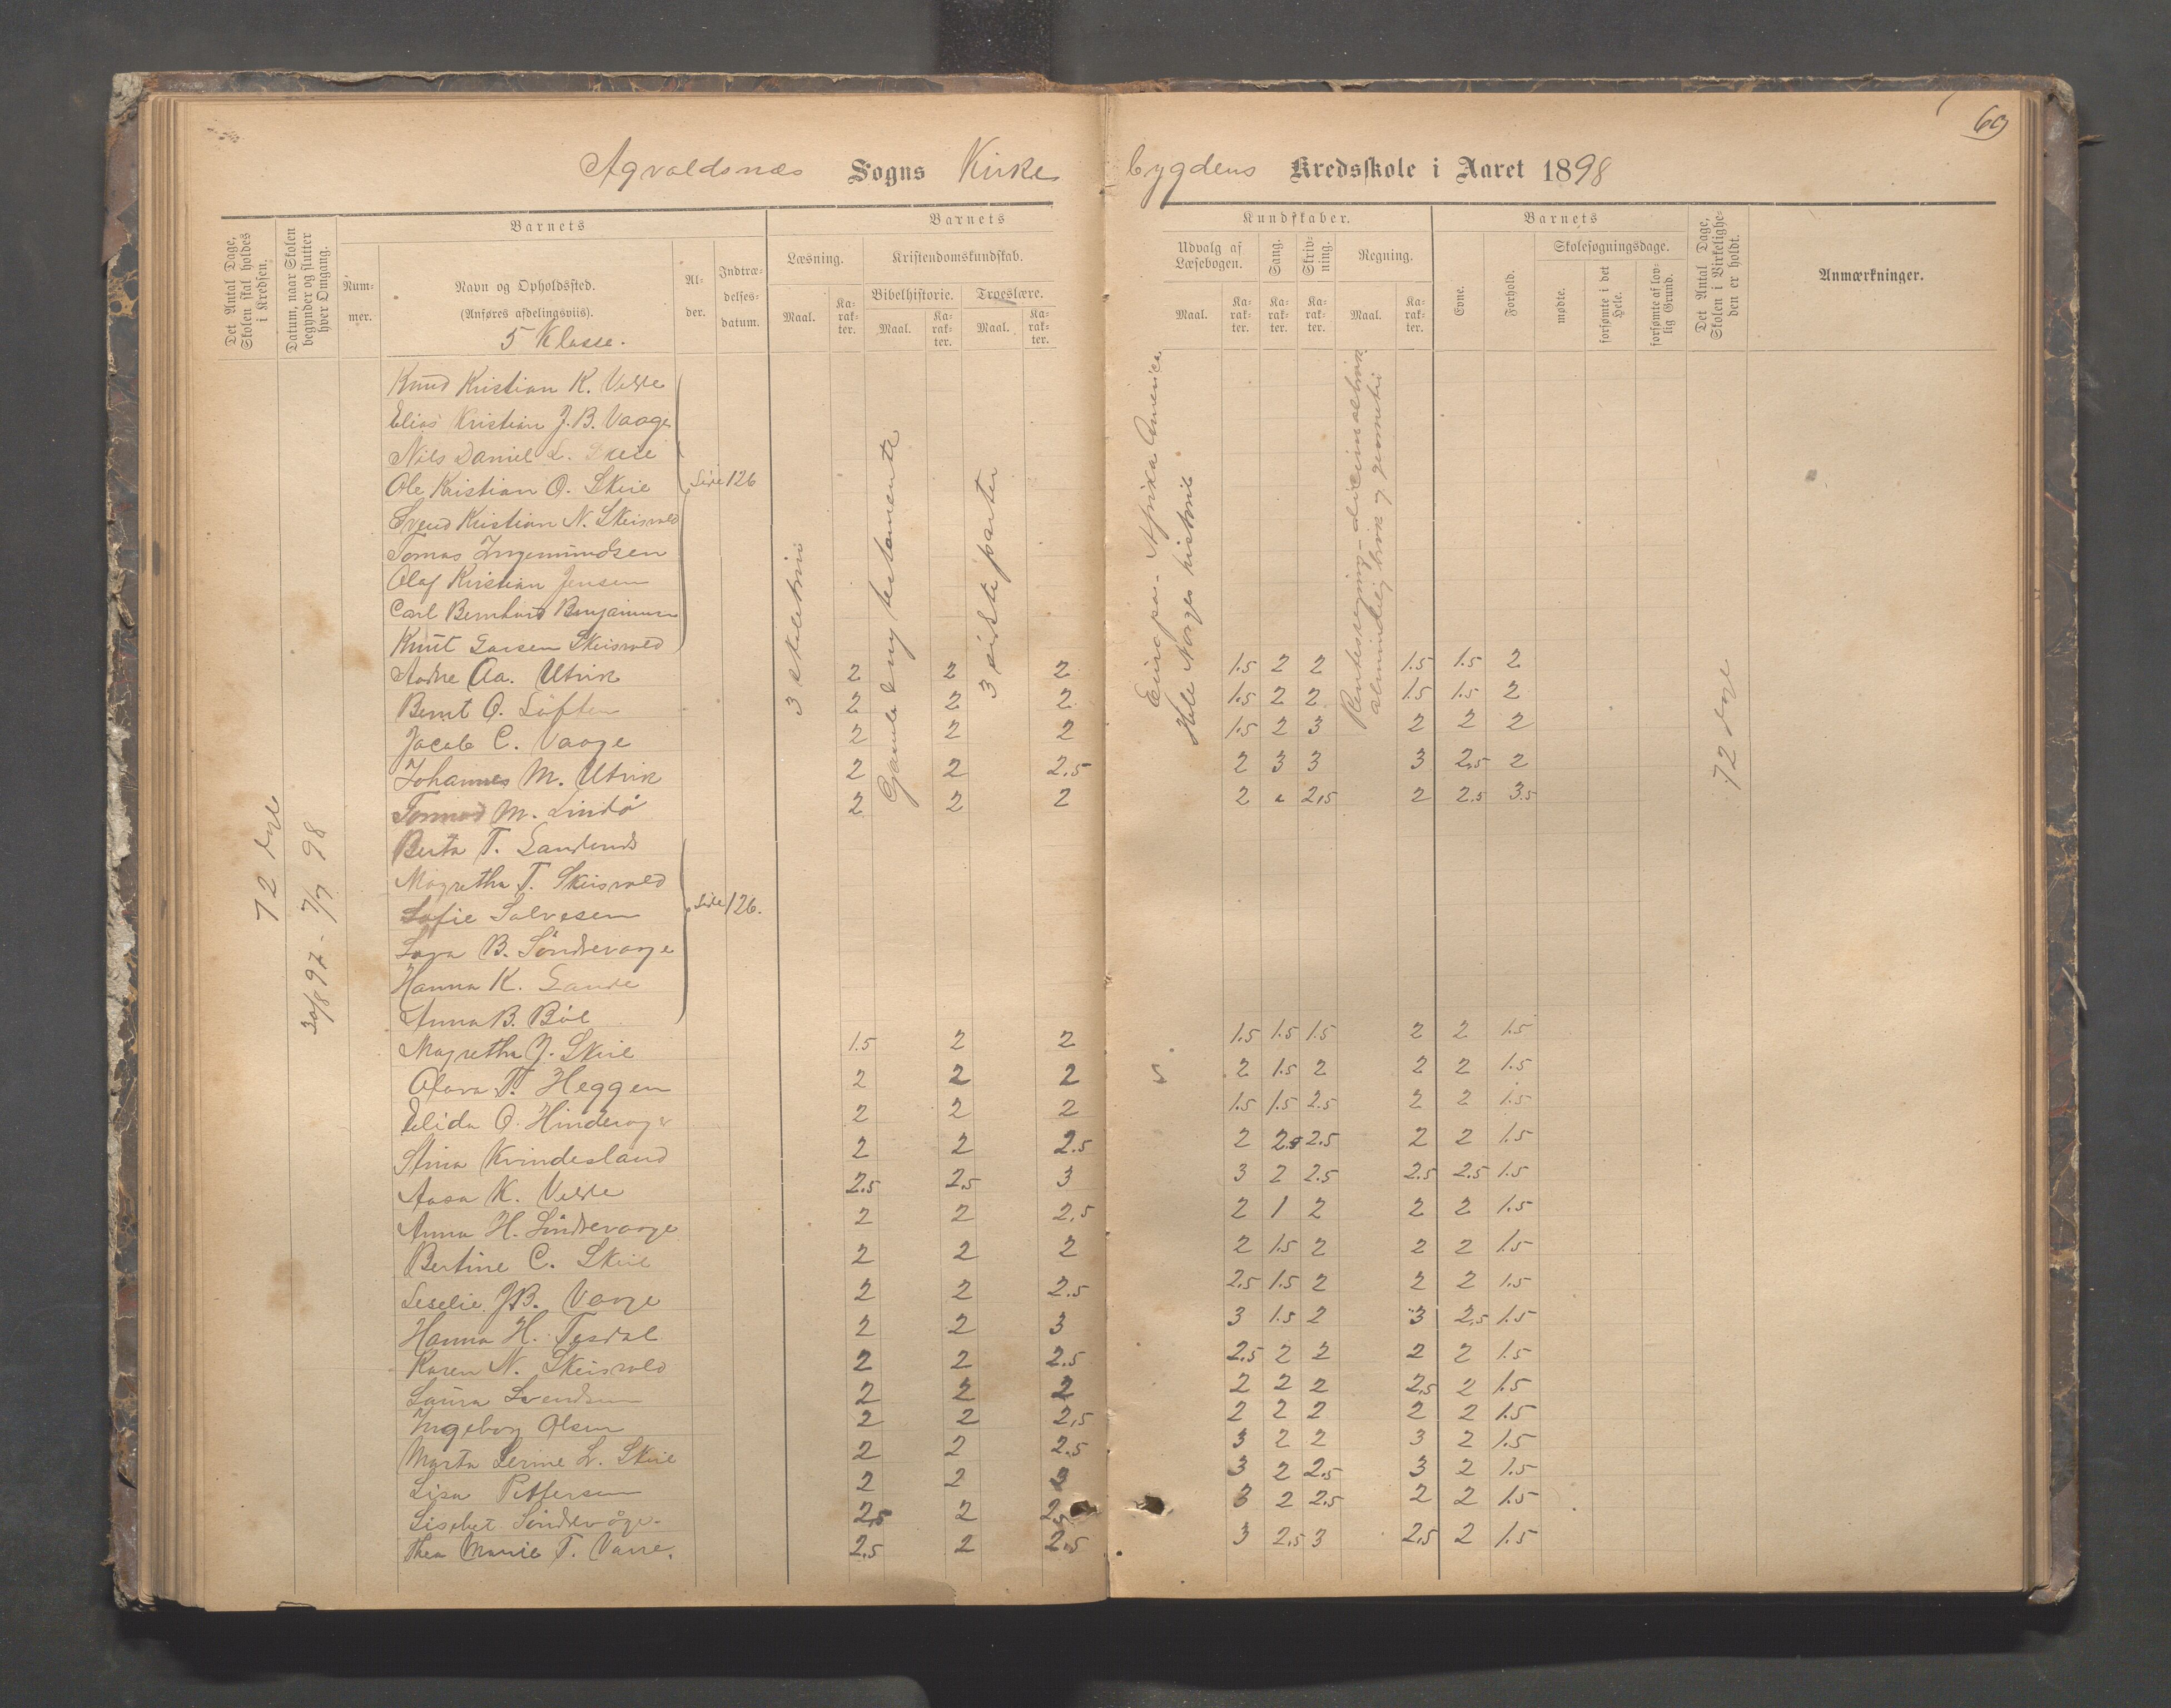 69
Agvaldsnæs Sogns Kirke bygdens Kredsskole i Aaret 1898
Det Antal Dage, Skolen skal holdes i Kredsen.
Datum, naar Skolen begynder og slutter hver Omgang.
Barnets
Num-mer.
Navn og Opholdssted.
(Anføres afdelingsviis).
5 Klasse.
Al-der.
Indtræ-delses-datum.
Barnets Kundskaber.
Læsning.
Maal.
Ka-rak-ter.
Kristendomskundskab.
Bibelhistorie.
Maal.
Ka-rak-ter.
Troeslære.
Maal.
Ka-rak-ter.
Udvalg af Læsebogen.
Maal.
Ka-rak-ter.
Sang.
Ka-rak-ter.
Skriv-ning.
Ka-rak-ter.
Regning.
Maal.
Ka-rak-ter.
Barnets
Evne.
Forhold.
Skolesøgningsdage.
mødte.
forsømte i det Hele.
forsømte af lov-lig Grund.
Det Antal Dage, Skolen i Virkelighe-den er holdt.
Anmærkninger.
72 dage
30/8 97 - 7/7 98
3 skoletrin
Gamle & ny testamente
3 siste parter
Europa - Afrika Amerika
Hele Norges historie
72 dage
Knud Kristian K. Velde
Elias Kristian J. B. Vaage
Nils Daniel L. Skeie
Ole Kristian O. Skeie
Side 126
Svend Kristian N. Skeisvold
Tomas Ingemundsen
Olaf Kristian Jensen
Carl Bernhard Benjaminsen
Knut Larsen Skeisvold
Aadne Aa. Utvik 2 2 2 1.5 2 2 1.5 1.5 2
Bernt O. Løften 2 2 2 1.5 2 2 1.5 1.5 2
Jacob C. Vaage 2 2 2 1.5 2 3 2 2 2
Johannes M. Utvik 2 2 2.5 2 3 3 3 2.5 2
Tormod M. Lindø 2 2 2 2 2.5 2 2.5 3.5
Berta T. Sandsund
Magretha T. Skeisvold
Sofie Salvesen
Side 126.
Sara B. Søndrevaage
Hanna K. Sande
Anna B. Bøe
Magretha J. Skeie 1.5 2 2 1.5 1.5 1.5 2 2 1.5
Olava T. Heggen 2 2 2 2 1.5 2 2 2 1.5
Elida O. Hindervag 2 2 2 1.5 1.5 2.5 2 2 1.5
Stina Kvindesland 2 2 2.5 2 2.5 2.5 2 2 1.5
Aasa K. Velde 2.5 2.5 3 3 2 2.5 2.5 2.5 1.5
Anna H. Søndrevaage 2 2 2.5 2 1 2 2 2 1.5
Bertine C. Skeie 2 2 2 2 1.5 2 2 2 1.5
Seselie J.B. Vaage 2 2 2.5 2.5 1.5 2 2 2 1.5
Hanna H. Tesdal 2 2 3 3 1.5 2 3 2.5 1.5
Karen N. Skeisvold 2 2 2.5 2.5 2 2 2 2 1.5
Laura Svendsen 2 2 2 2 2 2 2.5 2 1.5
Ingeborg Olsen 2 2 2.5 2 2 2 2 2 1.5
Marta Serine L. Skeie 2 2 2.5 3 2 2 3 2 1.5
Lisa Pettersen 2 2 3 3 2 2.5 3 2 1.5
Lisebet Søndrevåge 2.5 2 2.5 3 2 2.5 2 2 1.5
Thea Marie T. Varre. 2.5 2 2.5 3 2.5 3 2.5 2 1.5